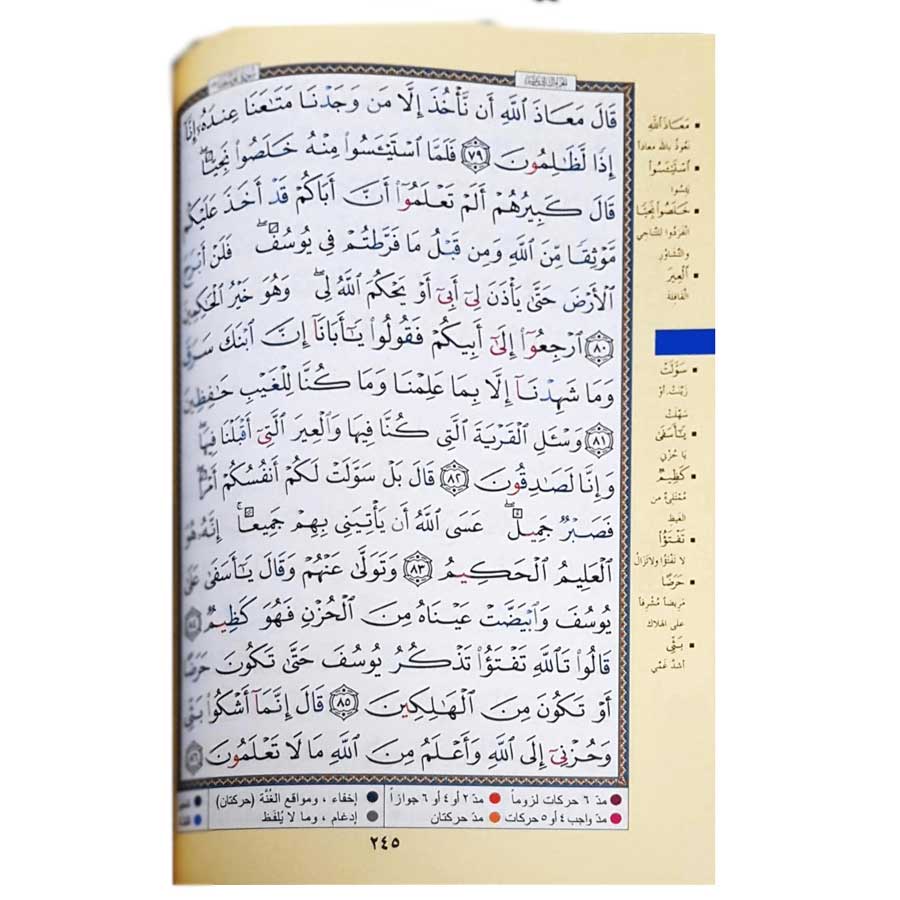 قَالَ مَعَاذَ ٱللَّهِ أَن نَّأْخُذَ إِلَّا مَن وَجَدْنَا مَتَـٰعَنَا عِندَهُۥٓ إِنَّآ
إِذًا لَّظَـٰلِمُونَ ٧٩ فَلَمَّا ٱسْتَيْـَٔسُوا۟ مِنْهُ خَلَصُوا۟ نَجِيًّا ۖ
قَالَ كَبِيرُهُمْ أَلَمْ تَعْلَمُوٓا۟ أَنَّ أَبَاكُمْ قَدْ أَخَذَ عَلَيْكُم
مَّوْثِقًا مِّنَ ٱللَّهِ وَمِن قَبْلُ مَا فَرَّطتُمْ فِى يُوسُفَ ۖ فَلَنْ أَبْرَحَ
ٱلْأَرْضَ حَتَّىٰ يَأْذَنَ لِىٓ أَبِىٓ أَوْ يَحْكُمَ ٱللَّهُ لِى ۖ وَهُوَ خَيْرُ ٱلْحَـٰكِمِينَ
٨٠ ٱرْجِعُوٓا۟ إِلَىٰٓ أَبِيكُمْ فَقُولُوا۟ يَـٰٓأَبَانَآ إِنَّ ٱبْنَكَ سَرَقَ
وَمَا شَهِدْنَآ إِلَّا بِمَا عَلِمْنَا وَمَا كُنَّا لِلْغَيْبِ حَـٰفِظِينَ
٨١ وَسْـَٔلِ ٱلْقَرْيَةَ ٱلَّتِى كُنَّا فِيهَا وَٱلْعِيرَ ٱلَّتِىٓ أَقْبَلْنَا فِيهَا ۖ
وَإِنَّا لَصَـٰدِقُونَ ٨٢ قَالَ بَلْ سَوَّلَتْ لَكُمْ أَنفُسُكُمْ أَمْرًا ۖ
فَصَبْرٌ جَمِيلٌ ۖ عَسَى ٱللَّهُ أَن يَأْتِيَنِى بِهِمْ جَمِيعًا ۚ إِنَّهُۥ هُوَ
ٱلْعَلِيمُ ٱلْحَكِيمُ ٨٣ وَتَوَلَّىٰ عَنْهُمْ وَقَالَ يَـٰٓأَسَفَىٰ عَلَىٰ
يُوسُفَ وَٱبْيَضَّتْ عَيْنَاهُ مِنَ ٱلْحُزْنِ فَهُوَ كَظِيمٌ ٨٤
قَالُوا۟ تَٱللَّهِ تَفْتَؤُا۟ تَذْكُرُ يُوسُفَ حَتَّىٰ تَكُونَ حَرَضًا
أَوْ تَكُونَ مِنَ ٱلْهَـٰلِكِينَ ٨٥ قَالَ إِنَّمَآ أَشْكُوا۟ بَثِّى
وَحُزْنِىٓ إِلَى ٱللَّهِ وَأَعْلَمُ مِنَ ٱللَّهِ مَا لَا تَعْلَمُونَ ٨٦
مَعَاذَ اللَّهِ
نَعُوذُ بالله معاذاً
ٱسْتَيْـَٔسُوا۟
يَئِسُوا
خَلَصُوا۟ نَجِيًّا
انْفَرَدُوا لِلتَّنَاجِي
والتَّشاوُرِ
ٱلْعِيرَ
الْقَافِلَة
سَوَّلَتْ
زَيَّنَتْ، أوْ
سَهَّلَتْ
يَـٰٓأَسَفَىٰ
يَا حُزْنِي
كَظِيمٌ
مُمْتَلِئٌ من
الغيظ
تَفْتَؤُا۟
لا تَفْتَؤُا ولا تَزَالُ
حَرَضًا
مَرِيضاً مُشْرِفاً
على الهلاك
بَثِّى
أشدَّ غَمِّي
مدّ ٦ حركات لزوماً مدّ ٢ أو ٤ أو ٦ جوازاً إخفاء ، ومواقع الغُنَّة (حركتان)
مدّ واجب ٤ أو ٥ حركات مدّ حركتان إدغام ، وما لا يُلفَظ
٢٤٥